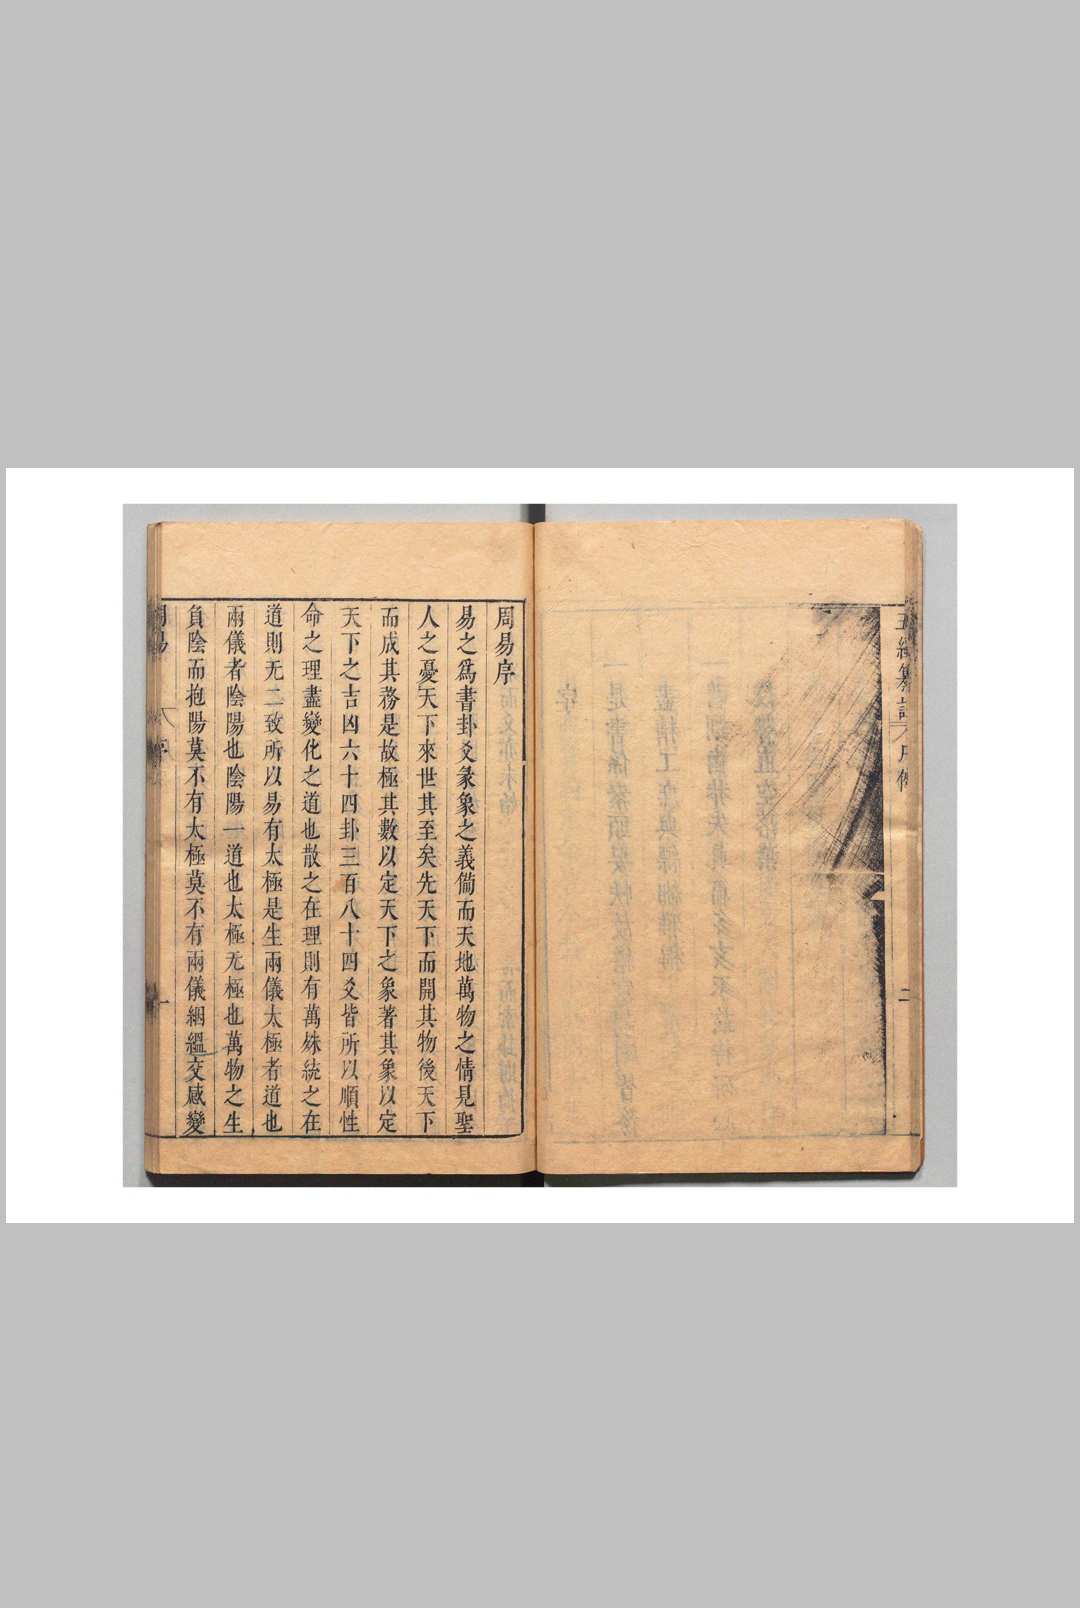 二
周易序
易之爲書卦爻彖象之義備而天地萬物之情見聖
人之憂天下來世其至矣先天下而開其物後天下
而成其務是故極其數以定天下之象著其象以定
天下之吉凶六十四卦三百八十四爻皆所以順性
命之理盡變化之道也散之在理則有萬殊統之在
道則无二致所以易有太極是生兩儀太極者道也
兩儀者陰陽也陰陽一道也太極无極也萬物之生
負陰而抱陽莫不有太極莫不有兩儀絪縕交感變
周易 序 一